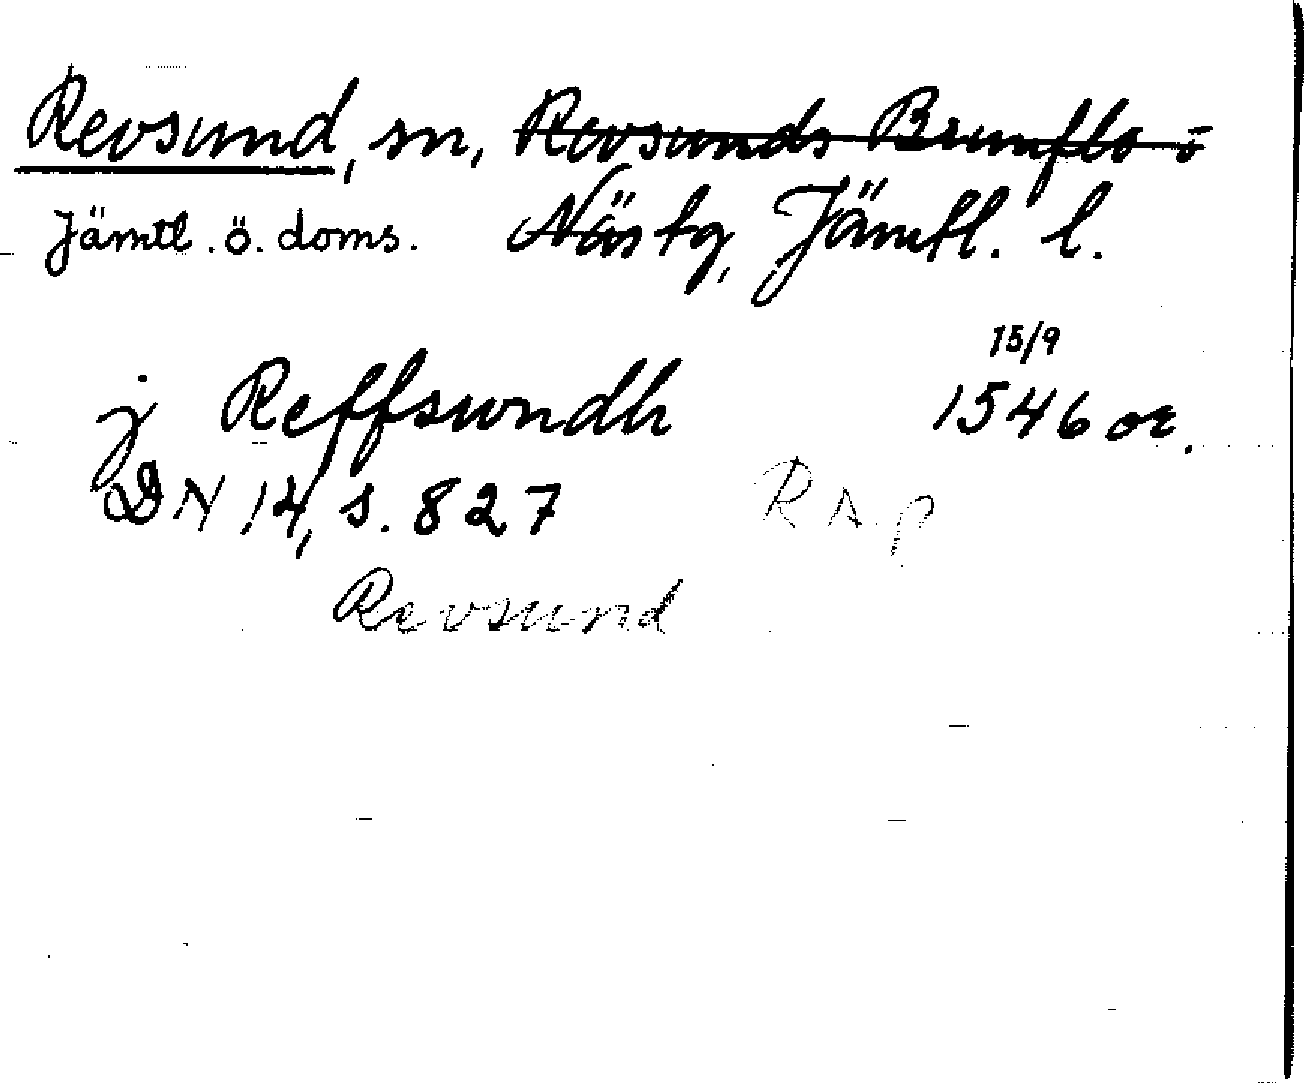 Revsund, sn, Revsunds Brunflo o
Jämtl. ö. doms. Näs tg, Jämtl. l.
15/9
j Reffswndh 1546 or.
DN 14, s. 827 RA p
Revsund